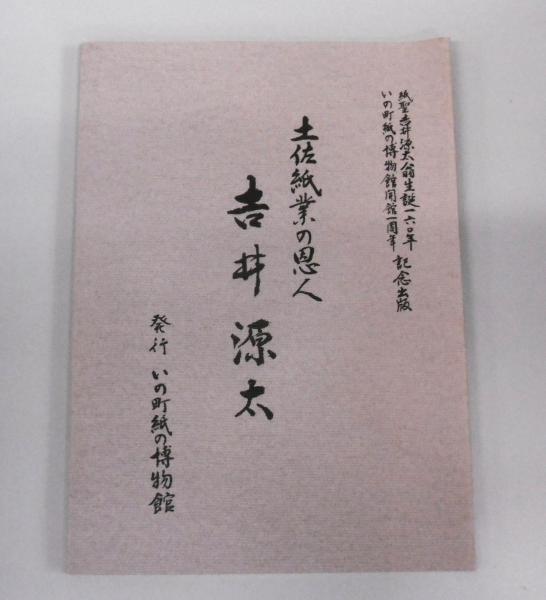 紙聖吉井源太翁生誕一六〇年
いの町紙の博物館開館一周年
記念出版
土佐紙業の恩人
吉井源太
発行 いの町紙の博物館